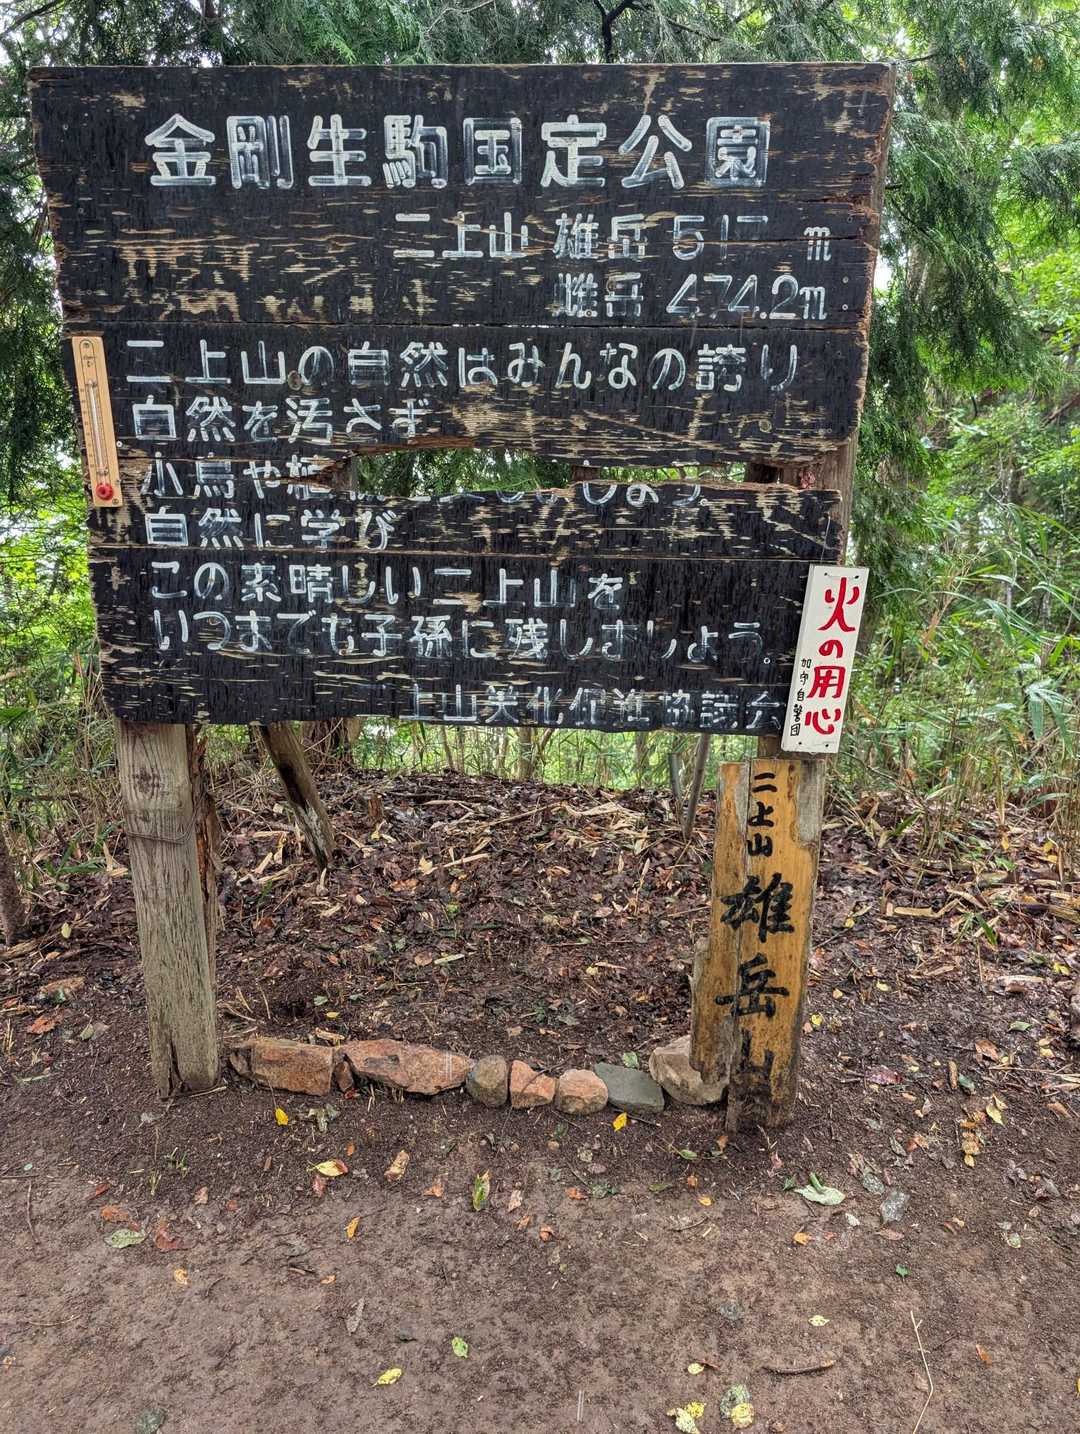 金剛生駒国定公園
二上山 雄岳 517 m
雌岳 474.2m
二上山の自然はみんなの誇り
自然を汚さず
小鳥や植 しょう
自然に学び
この素晴しい二上山を
いつまでも子孫に残しましょう。
上山美化促進協議会
火の用心
加守自警団
二上山
雄岳山